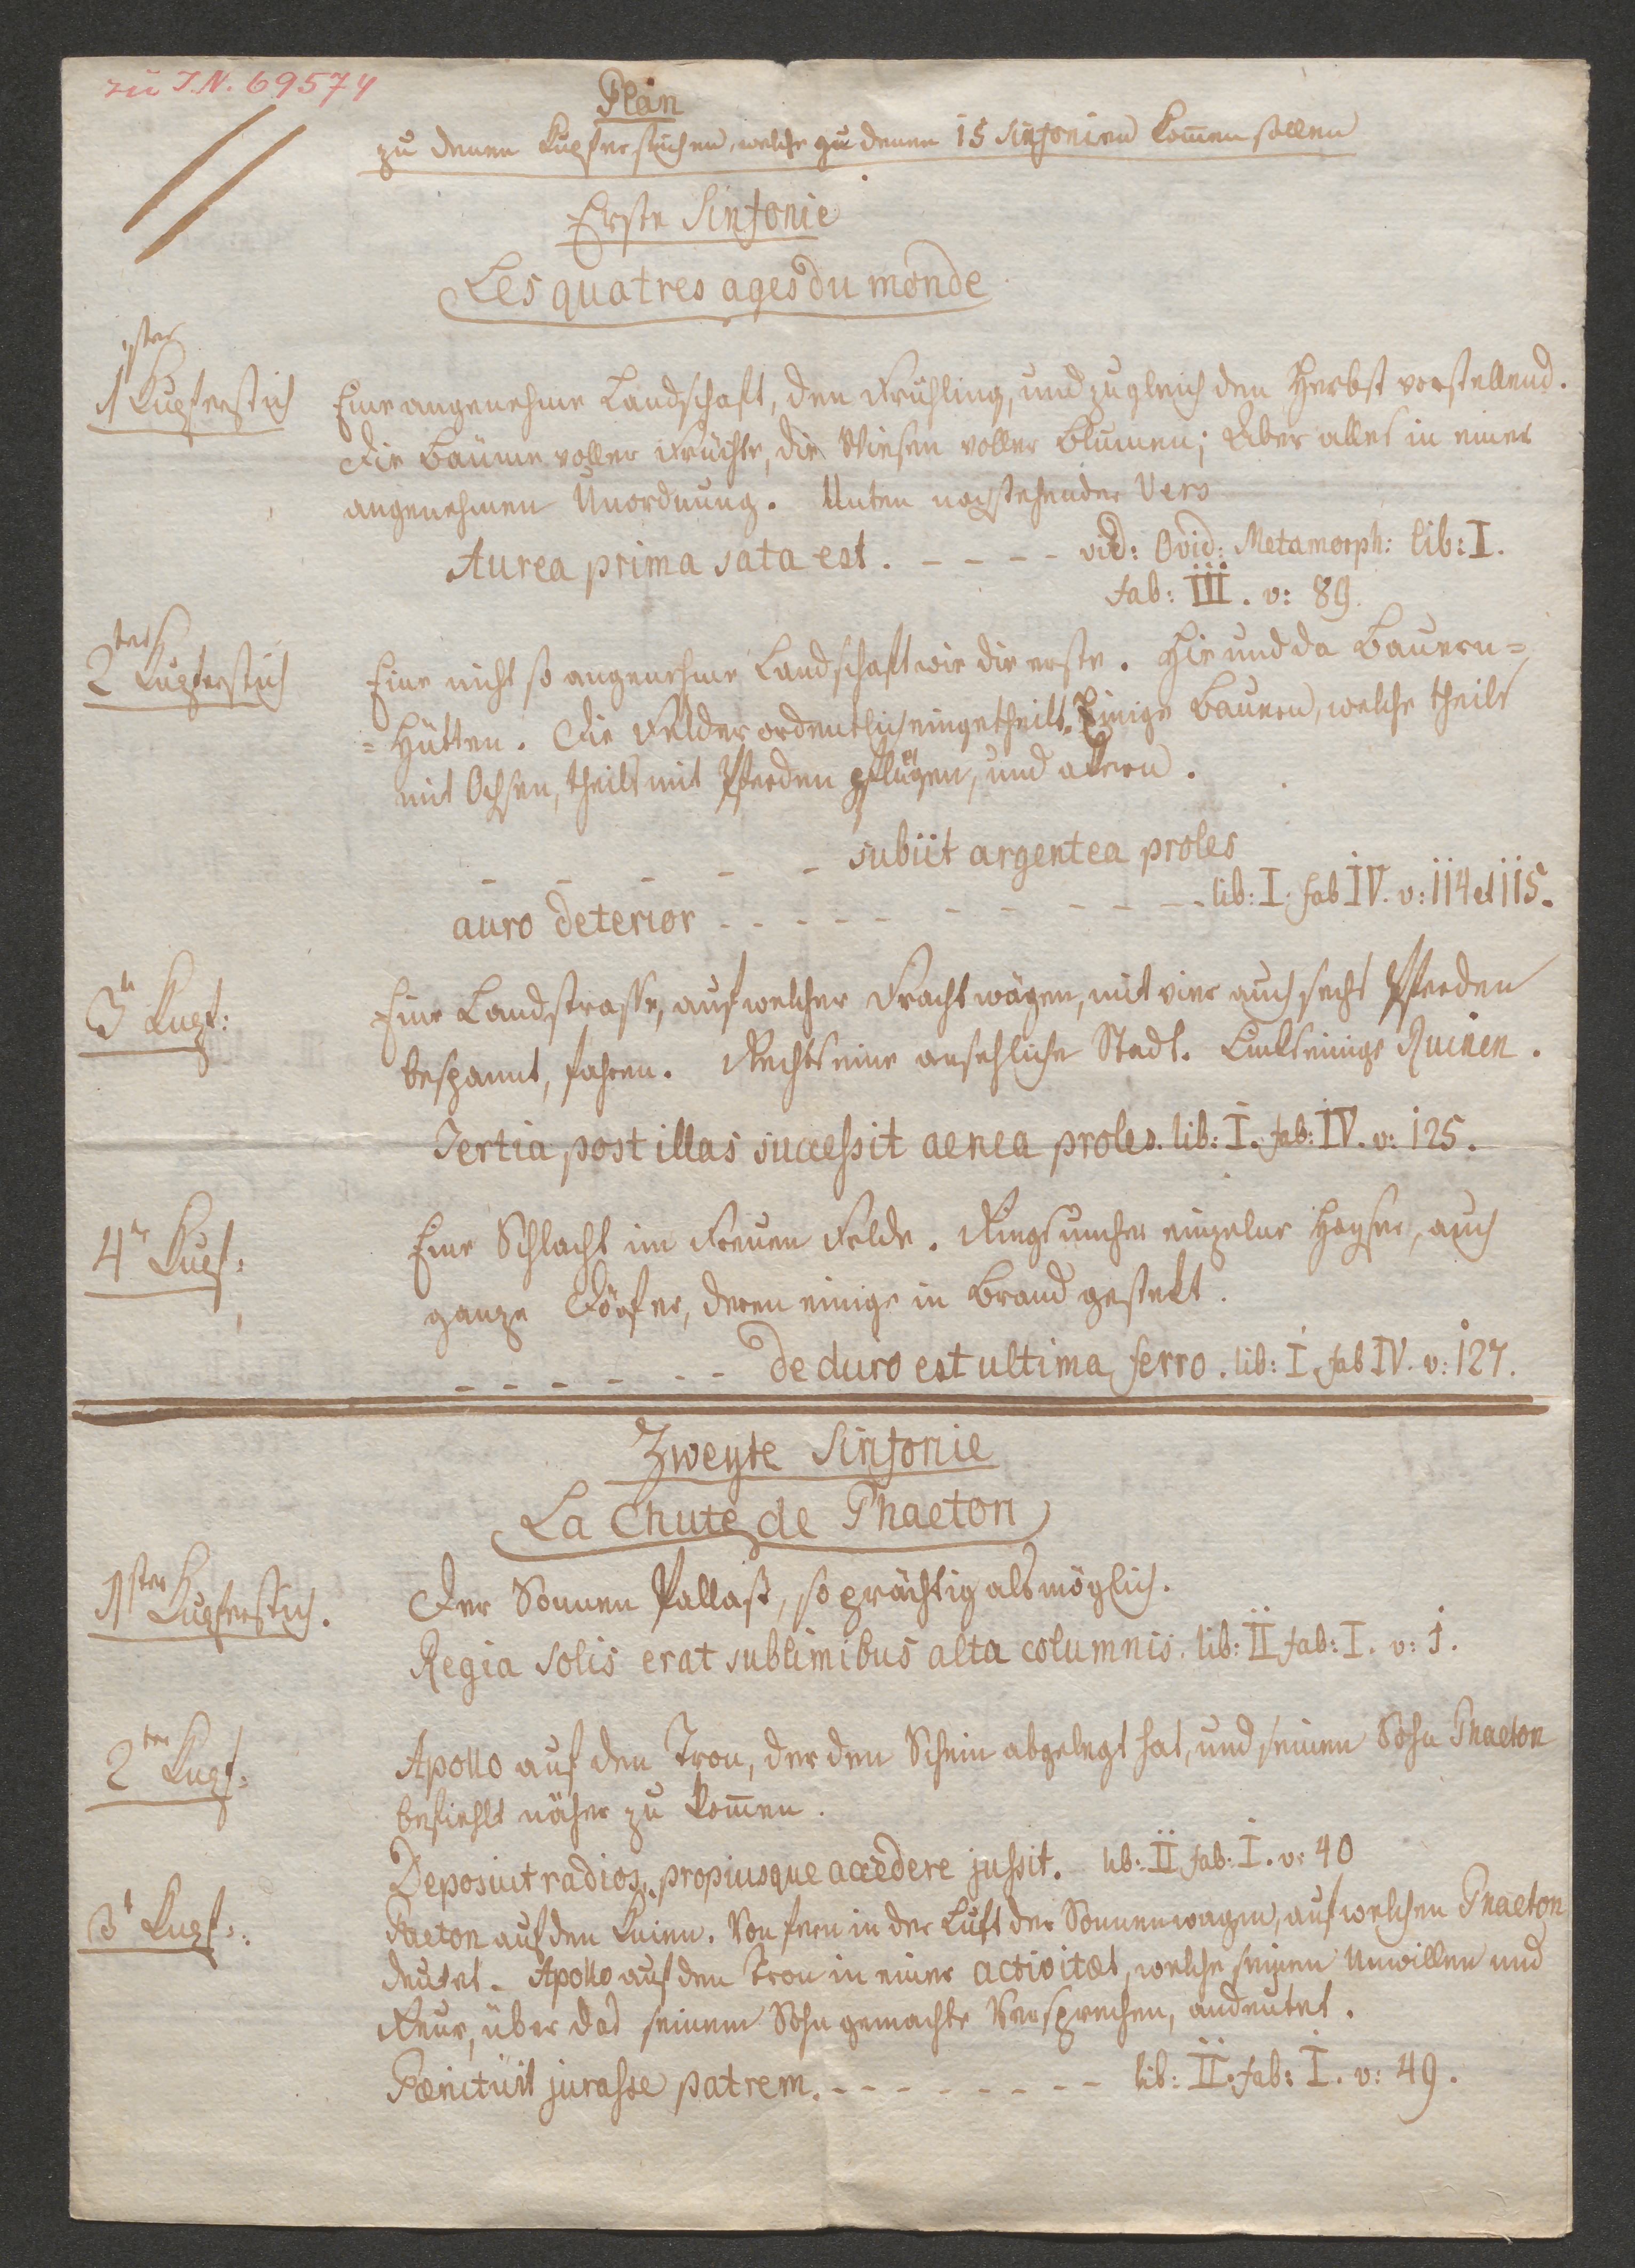 zu I.N. 69574
Plan
zu denen Kupferstichen, welche zu denen 15 Sinfonien kom̅en sollen
Erste Sinfonie
Les quatres ages du monde
1ster Kupferstich
Eine angenehme Landschaft, den Frühling, und zugleich den Herbst vorstellend.
Die Bäume voller Früchte, die Wiesen voller Blumen; Aber alles in einer
angenehmen Unordnung. Unten nachstehender Vers
Aurea prima sata est. - - - - vid: Ovid: Metamorph: lib: I.
fab: III. v: 89.
2ter Kupferstich
Eine nicht so angenehme Landschaft wie die erste. Hie und da Bauern=
=Hütten. Die Felder ordentlich eingetheilt. Einige Bauern, welche theils
mit Ochsen, theils mit Pferden pflügen, und akern.
- - - - - subiit argentea proles
auro deterior - - - - - - - - - - - lib: I. fab IV. v: 114 et 115.
3t Kupf:
Eine Landstrasse, auf welcher Frachtwägen, mit vier auch sechs Pferden
bespannt, fahren. Rechts eine ansehliche Stadt. Links einige Ruinen.
Tertia post illas successit aenea proles. lib: I. fab: IV. v: 125.
4tr Kupf:
Eine Schlacht im Freuen Felde. Rings umher einzelne Heyser, auch
ganze Dörfer, deren einige in Brand gestekt.
- - - - - - - De duro est ultima ferro. lib: I. fab IV. v: 127.
Zweyte Sinfonie
La Chute de Phaeton
1ster Kupferstich.
Der Sonnen Pallast, so prächtig als möglich.
Regia solis erat sublimibus alta columnis. lib: II fab: I. v: 1.
2ter Kupf:
Apollo auf den Tron, der den Schein abgelegt hat, und seinen Sohn Phaeton
befiehlt näher zu kom̅en.
Deposuit radios, propiusque accedere jussit. lib: II fab: I. v: 40
3t Kupf:
Paeton auf den Knien. Von fern in der Luft der Sonnenwagen, auf welchen Phaeton
deutet. Apollo auf den Tron in einer activitæt, welche seinen Unwillen und
Reue, über das seinem Sohn gemachte Versprechen, andeutet.
Pænituit jurasse patrem. - - - - - - - - lib: II. fab: I. v: 49.